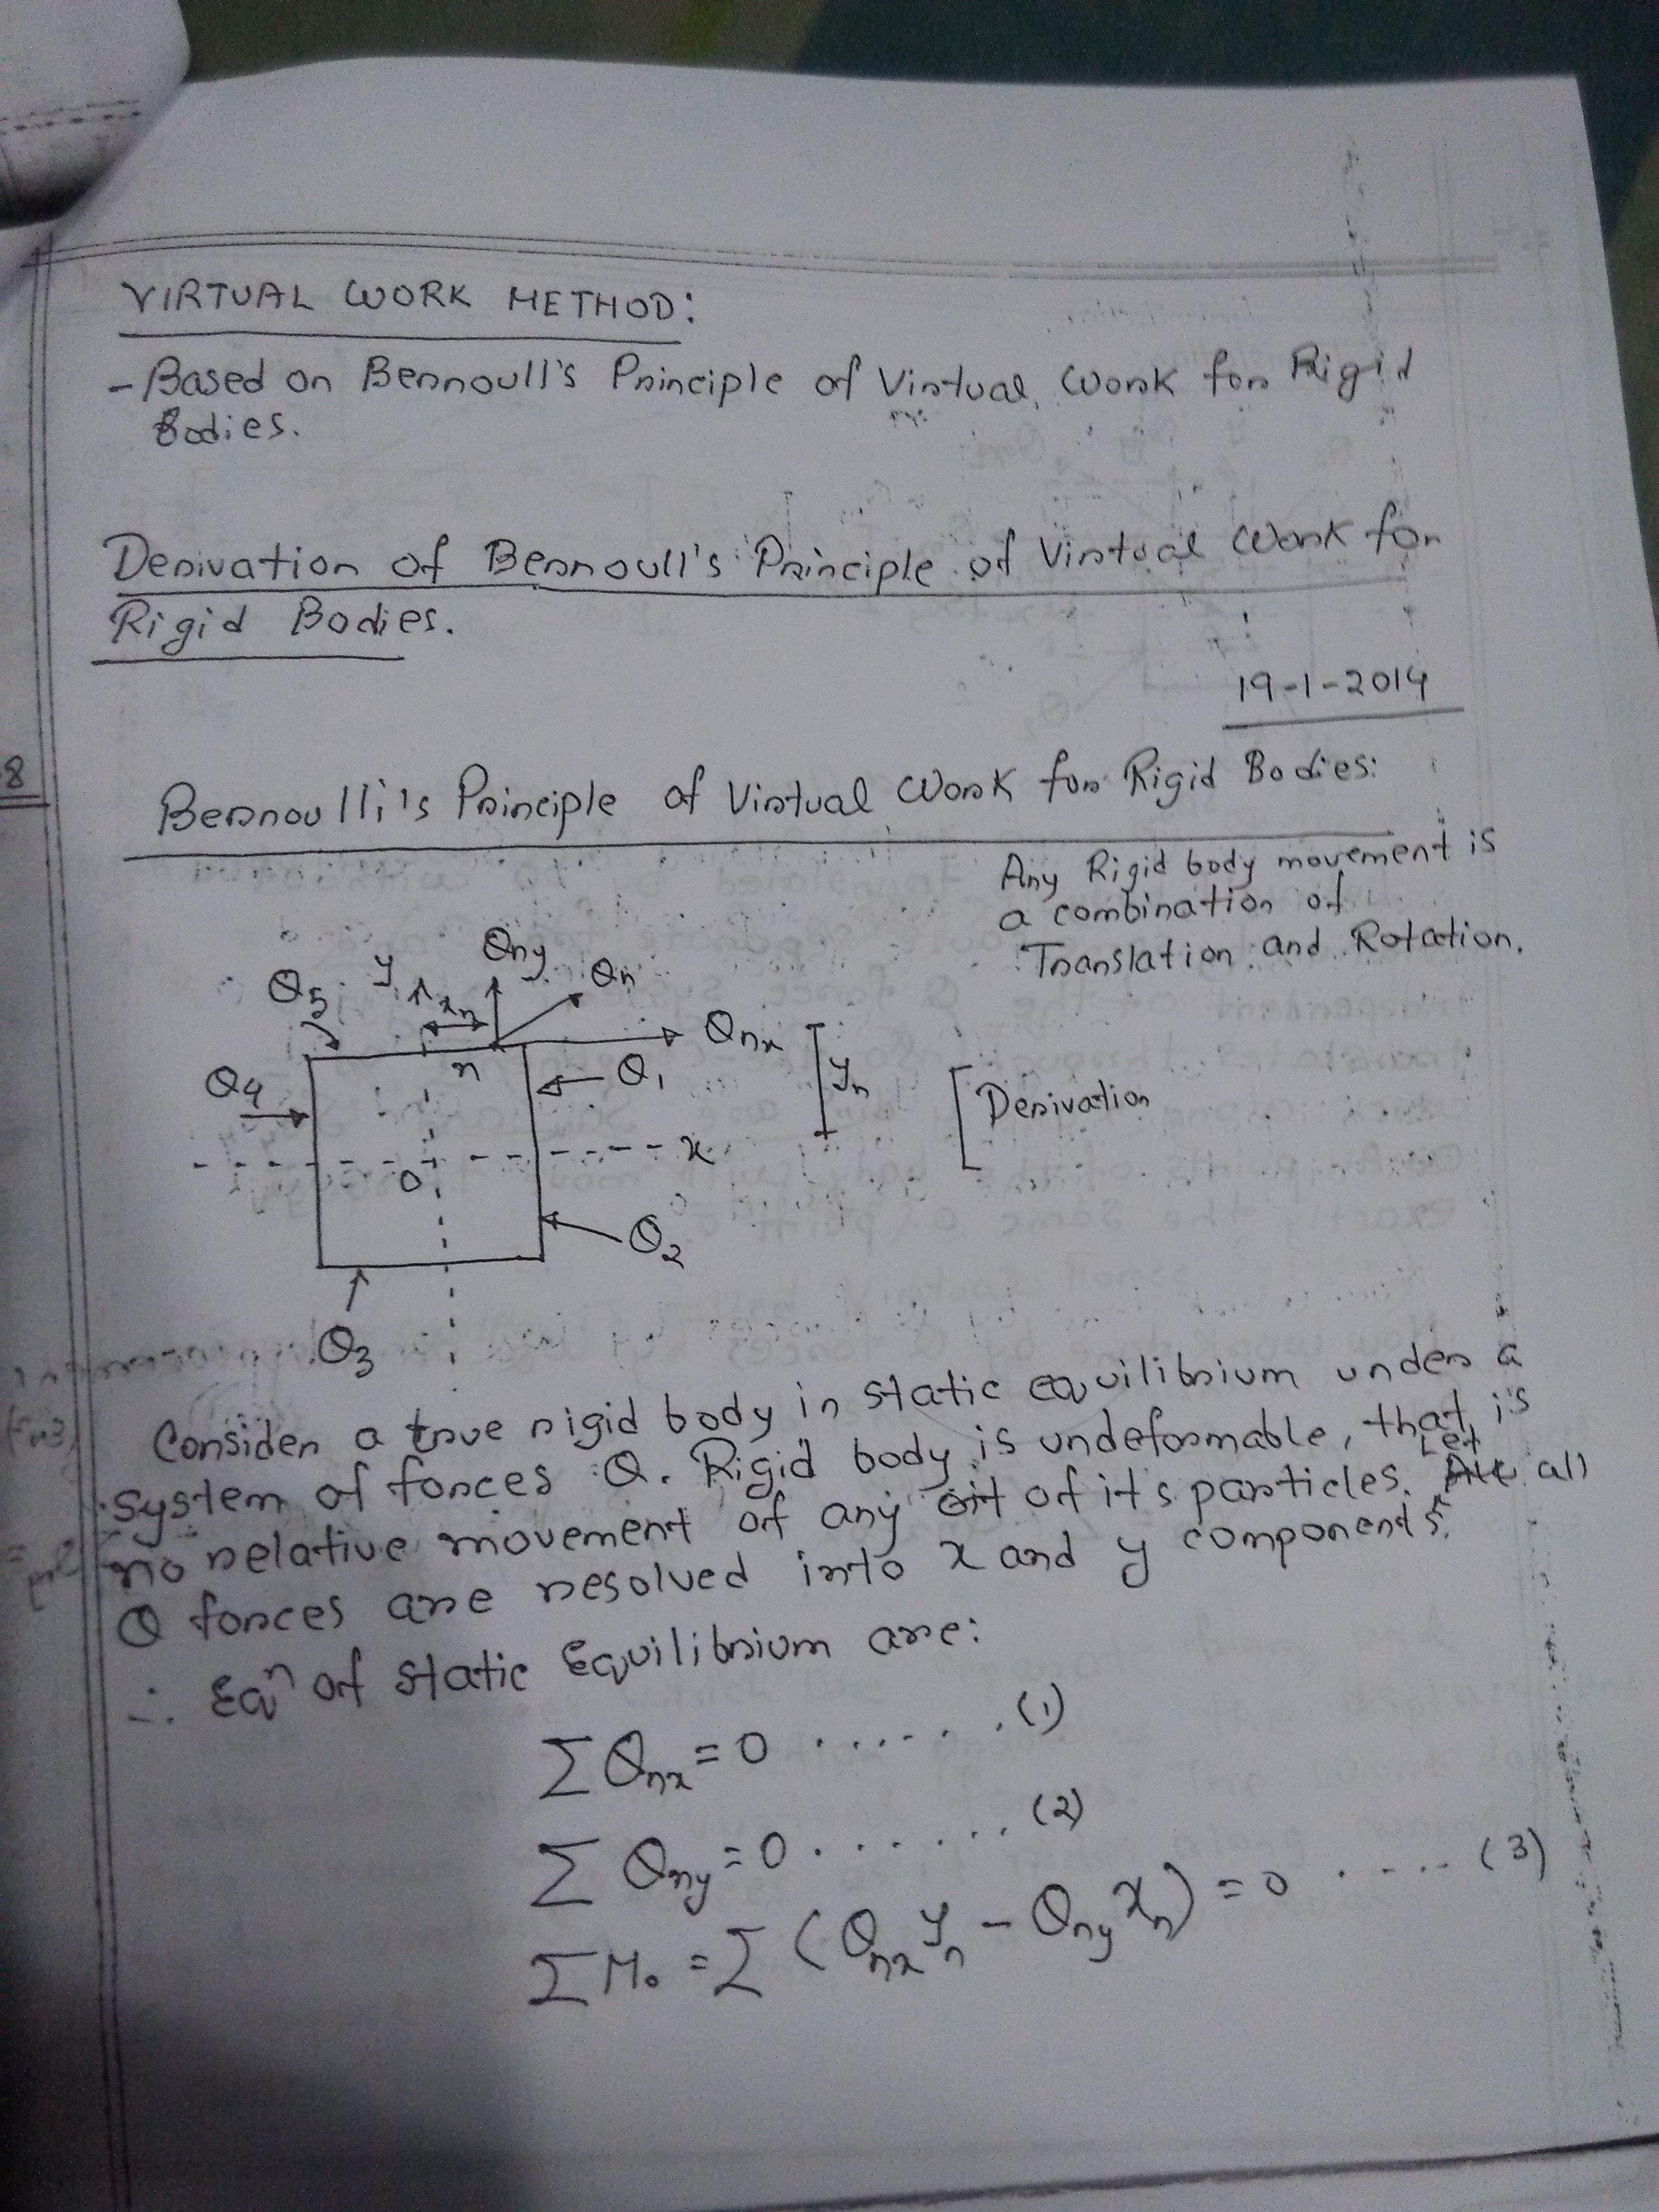 VIRTUAL WORK METHOD:
- Based on Bernoull's Principle of Virtual Work for Rigid
Bodies.
Derivation of Bernoull's Principle of Virtual Work for
Rigid Bodies.
19-1-2014
8
Bernoulli's Principle of Virtual Work for Rigid Bodies:
Any Rigid body movement is
a combination of
Translation and Rotation.
Qny
Q5
y
xn
Qn
Qnx
n
Q1
yn
Q4
[Derivation
x
O
Q2
Q3
Consider a true rigid body in static equilibrium under a
system of forces Q. Rigid body is undeformable, that is
no relative movement of any of its particles. Let all
Q forces are resolved into x and y components.
∴ Eqⁿ of static Equilibrium are:
∑Qnx = 0 ....... (1)
∑ Qny = 0 ....... (2)
∑M₀ = ∑ (Qnx yn - Qny xn) = 0 ..... (3)